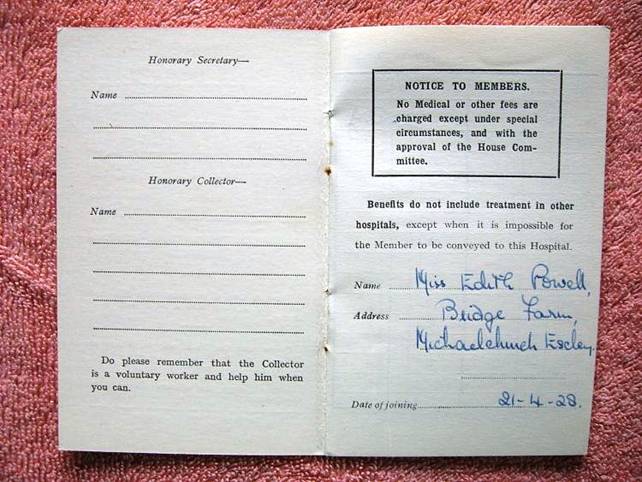 Honorary Secretary—
Name
Honorary Collector—
Name
Do please remember that the Collector
is a voluntary worker and help him when
you can.
NOTICE TO MEMBERS.
No Medical or other fees are
charged except under special
circumstances, and with the
approval of the House Com-
mittee.
Benefits do not include treatment in other
hospitals, except when it is impossible for
the Member to be conveyed to this Hospital.
Name Miss Edith Powell,
Address Bridge Farm,
Michaelchurch Escley
Date of joining 21-4-28.